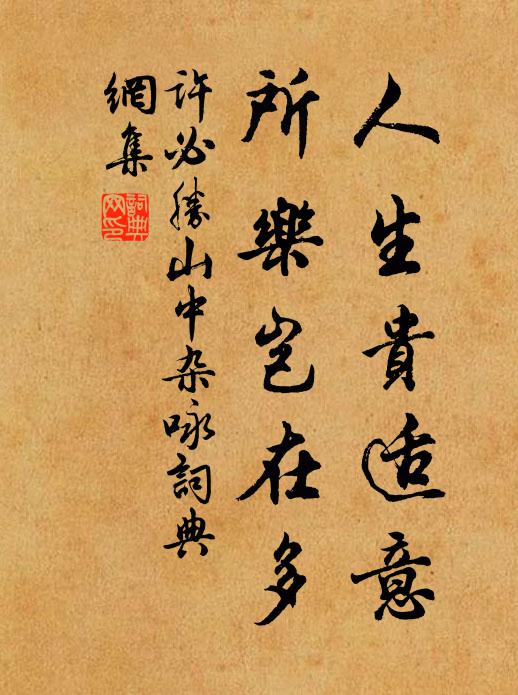 人生貴适意
所樂豈在多
許必勝山中杂咏詞典
網集
詞典
网印